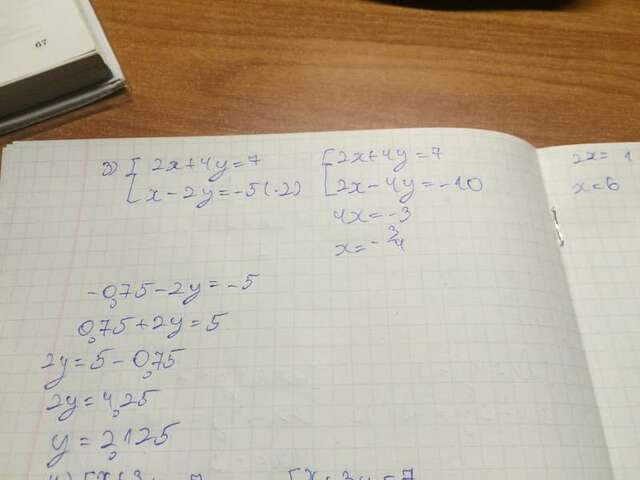 67
3) { 2x+4y=7
x-2y=-5(·2)
{ 2x+4y=7
2x-4y=-10
4x=-3
x=-3/4
-0,75-2y=-5
0,75+2y=5
2y=5-0,75
2y=4,25
y=2,125
2x=1
x=6